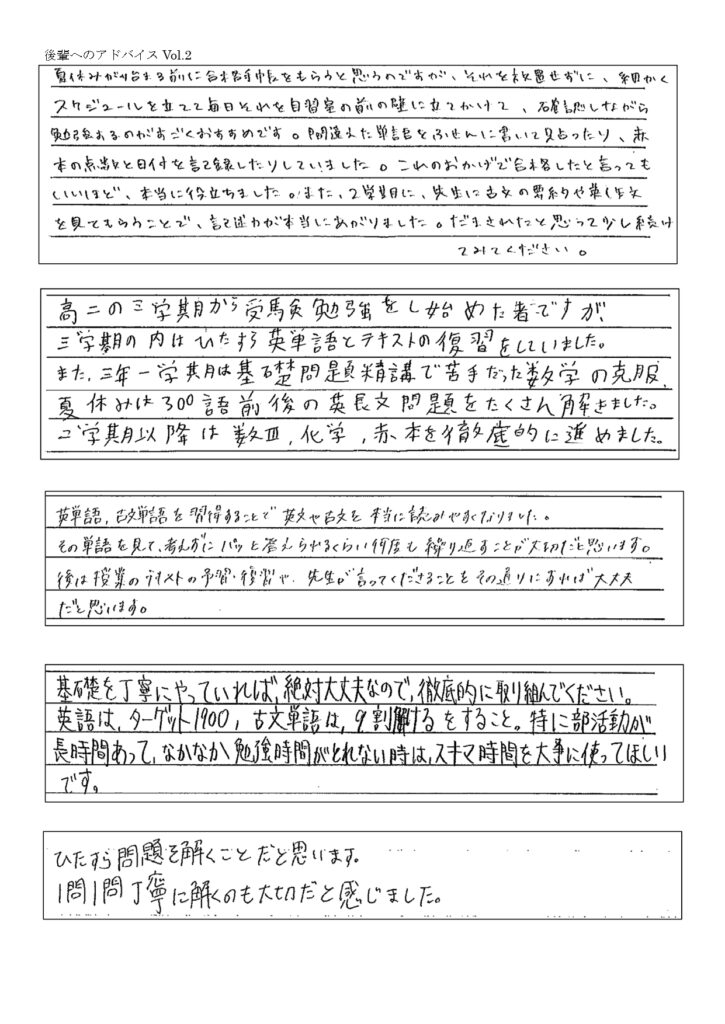 後輩へのアドバイス Vol.2
夏休みが始まる前に合格手帳をもらうと思うのですが、それを放置せずに、細かく
スケジュールを立てて毎日それを自習室の前の壁に立てかけて、確認しながら
勉強するのがすごくおすすめです。間違えた単語をふせんに書いて貼ったり、赤
本の点数と日付を記録したりしていました。これのおかげで合格したと言っても
いいほど、本当に役立ちました。また、2学期に、先生に古文の要約や英作文
を見てもらうことで、記述力が本当にあがりました。だまされたと思って少し続け
てみてください。
高二の三学期から受験勉強をし始めた者ですが、
三学期の内はひたすら英単語とテキストの復習をしていました。
また、三年一学期は基礎問題精講で苦手だった数学の克服、
夏休みは300語前後の英長文問題をたくさん解きました。
二学期以降は数Ⅲ,化学,赤本を徹底的に進めました。
英単語,古文単語を習得することで英文や古文を本当に読みやすくなりました。
その単語を見て、考えずにパッと答えられるくらい何度も繰り返すことが大切だと思います。
後は授業のテキストの予習・復習や、先生が言ってくださることをその通りにすれば大丈夫
だと思います。
基礎を丁寧にやっていれば,絶対大丈夫なので,徹底的に取り組んでください。
英語は,ターゲット1900,古文単語は,9割解けるをすること。特に部活動が
長時間あって,なかなか勉強時間がとれない時は,スキマ時間を大事に使ってほしい
です。
ひたすら問題を解くことだと思います。
1問1問丁寧に解くのも大切だと感じました。